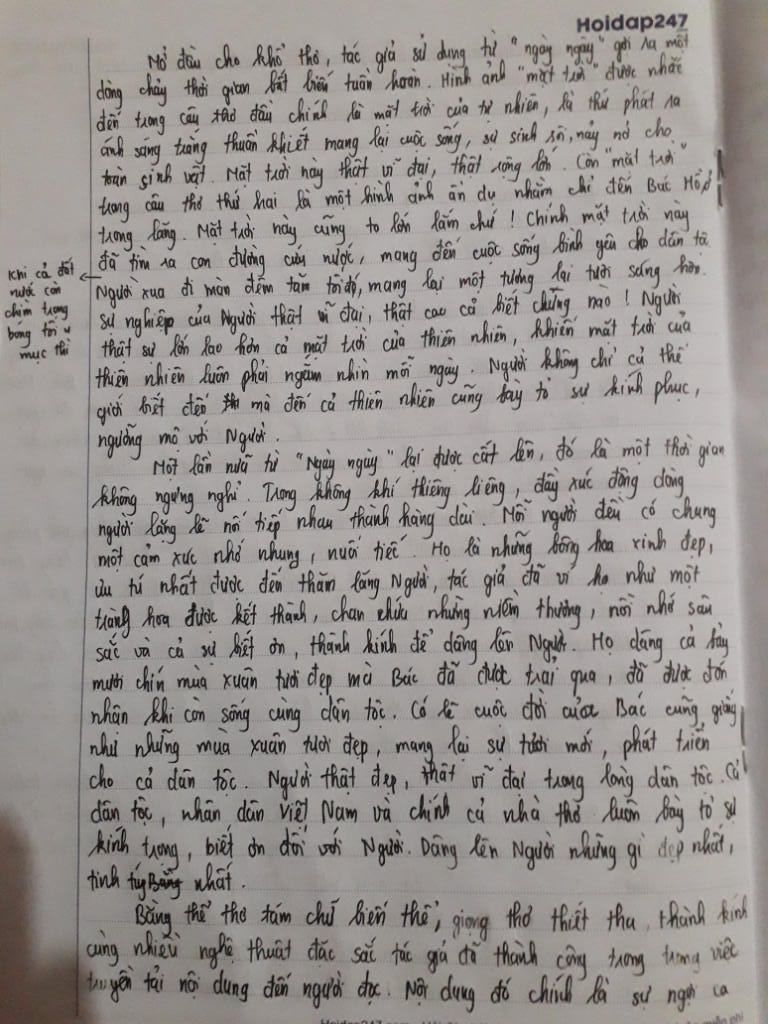 Hoidap247
Mở đầu cho khổ thơ, tác giả sử dụng từ "ngày ngày" gợi ra một
dòng chảy thời gian bất biến tuần hoàn. Hình ảnh "mặt trời" được nhắc
đến trong câu thơ đầu chính là mặt trời của tự nhiên, là thứ phát ra
ánh sáng trắng thuần khiết mang lại cuộc sống, sự sinh sôi, nảy nở cho
toàn sinh vật. Mặt trời này thật vĩ đại, thật rộng lớn. Còn "mặt trời"
trong câu thơ thứ hai là một hình ảnh ẩn dụ nhằm chỉ đến Bác Hồ, ở
trong lăng. Mặt trời này cũng to lớn lắm chứ! Chính mặt trời này
đã tìm ra con đường cứu nước, mang đến cuộc sống bình yên cho dân tộ
Khi cả đất
nước còn
chìm trong
bóng tối u
mục thì
Người xua đi màn đêm tăm tối đó, mang lại một tương lại tươi sáng hơn.
sự nghiệp của Người thật vĩ đại, thật cao cả biết chừng nào! Người
thật sự lớn lao hơn cả mặt trời của thiên nhiên, khiến mặt trời của
thiên nhiên luôn phải ngắm nhìn mỗi ngày. Người không chỉ cả thế
giới biết đến mà đến cả thiên nhiên cũng bày tỏ sự kính phục,
ngưỡng mộ với Người.
Một lần nữa từ "Ngày ngày" lại được cất lên, đó là một thời gian
không ngưng nghỉ. Trong không khí thiêng liêng, đầy xúc động dòng
người lặng lẽ nối tiếp nhau thành hàng dài. Mỗi người đều có chung
một cảm xúc nhớ nhung, nuối tiếc. Họ là những bông hoa xinh đẹp,
ưu tú nhất được đến thăm lăng Người, tác giả đã ví họ như một
tràng hoa được kết thành, chan chứa những niềm thương, nỗi nhớ sâu
sắc và cả sự biết ơn, thành kính để dâng lên Người. Họ dâng cả bảy
mươi chín mùa xuân tươi đẹp mà Bác đã được trải qua, đã được đón
nhận khi còn sống cùng dân tộc. Có lẽ cuộc đời của Bác cũng giống
như những mùa xuân tươi đẹp, mang lại sự tươi mới, phát triển
cho cả dân tộc. Người thật đẹp, thật vĩ đại trong lòng dân tộc. Cả
dân tộc, nhân dân Việt Nam và chính cả nhà thơ luôn bày tỏ sự
kính trọng, biết ơn đối với Người. Dâng lên Người những gì đẹp nhất,
tinh túy nhất.
Bằng thể thơ tám chữ biến thể, giọng thơ thiết tha, thành kính
cùng nhiều nghệ thuật đặc sắc tác giả đã thành công trong trong việc
truyền tải nội dung đến người đọc. Nội dung đó chính là sự ngợi ca